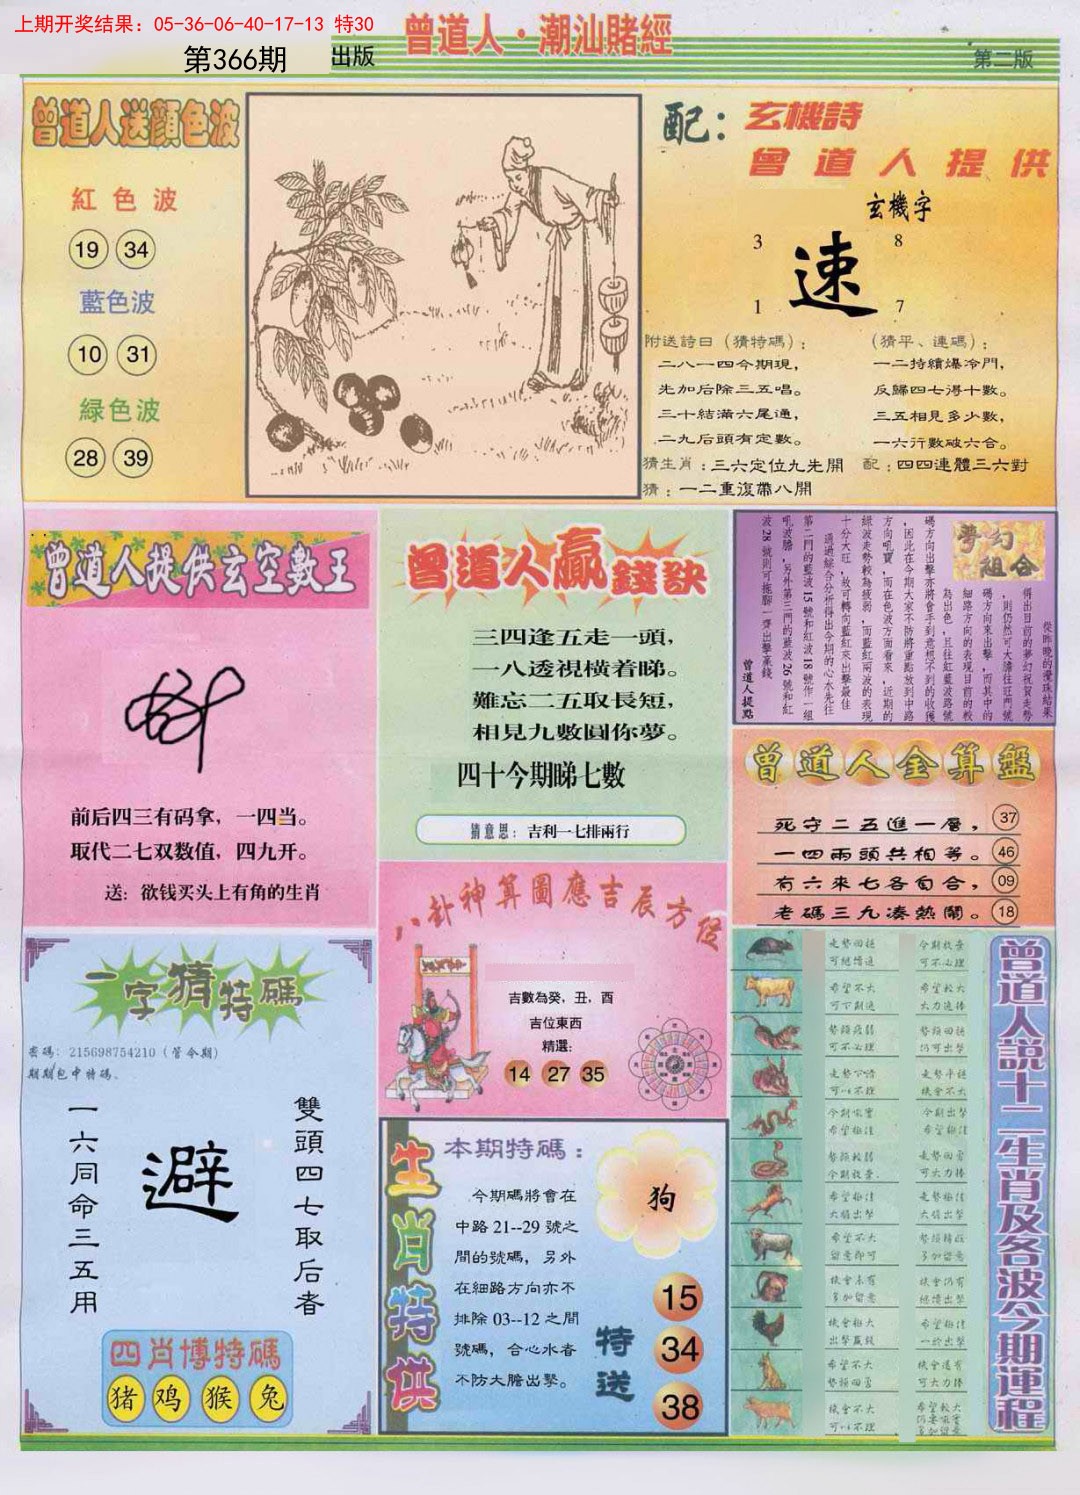 上期开奖结果：05-36-06-40-17-13 特30
第366期 出版
曾道人·潮汕賭經
第二版
曾道人送顏色波
紅色波
19 34
藍色波
10 31
緑色波
28 39
配：玄機詩
曾道人提供
玄機字
3 8
速
1 7
附送詩曰（猜特碼）：
二八一四今期現，
先加后除三五唱。
三十結滿六尾通，
二九后頭有定數。
（猜平、連碼）：
一二持續爆冷門，
反歸四七得十數。
三五相見多少數，
一六行數破六合。
猜生肖：三六定位九先開
配：四四連體三六對
猜：一二重復帶八開
曾道人提供玄空數王
前后四三有码拿，一四当。
取代二七双数值，四九开。
送：欲钱买头上有角的生肖
曾道人贏錢訣
三四逢五走一頭，
一八透視横着睇。
難忘二五取長短，
相見九數圓你夢。
四十今期睇七數
猜意思：吉利一七排兩行
夢幻組合
從昨晚的攪珠結果
得出目前的夢幻祝賀走勢
，則仍然可大膽往旺門號
碼方向來出擊，而其中的
細路方向的表現目前的較
為出色，且往紅藍波路號
碼方向出擊亦將會手到意想不到的收獲
，因此在今期大家不防將重點放到中路
方向吼實，而在色波方面看來，近期的
緑波走勢較為疲弱，而藍紅兩波的表現
十分大旺，故可轉向藍紅來出擊最佳
通過綜合分析得出今期的心水先往
第二門的藍波15號和紅波18號作一組
吼波膽，另外第三門的藍波26號和紅
波28號則可拖腳一齊出擊贏錢
曾道人提點
曾道人金算盤
死守二五進一層， 37
一四兩頭共相等。 46
有六來七各自合， 09
老碼三九凑熱鬧。 18
八卦神算圖應吉辰方位
吉數為癸，丑，酉
吉位東西
精選：
14 27 35
一字猜特碼
密碼：215698754210（管今期）
期期包中特碼、
一六同命三五用
避
雙頭四七取后者
四肖博特碼
猪 鸡 猴 兔
生肖特供
本期特碼：
今期碼將會在
中路21--29號之
間的號碼，另外
在細路方向亦不
排除03--12之間
號碼，合心水者
不防大膽出擊。
狗
特送
15
34
38
曾道人説十二生肖及各波今期運程